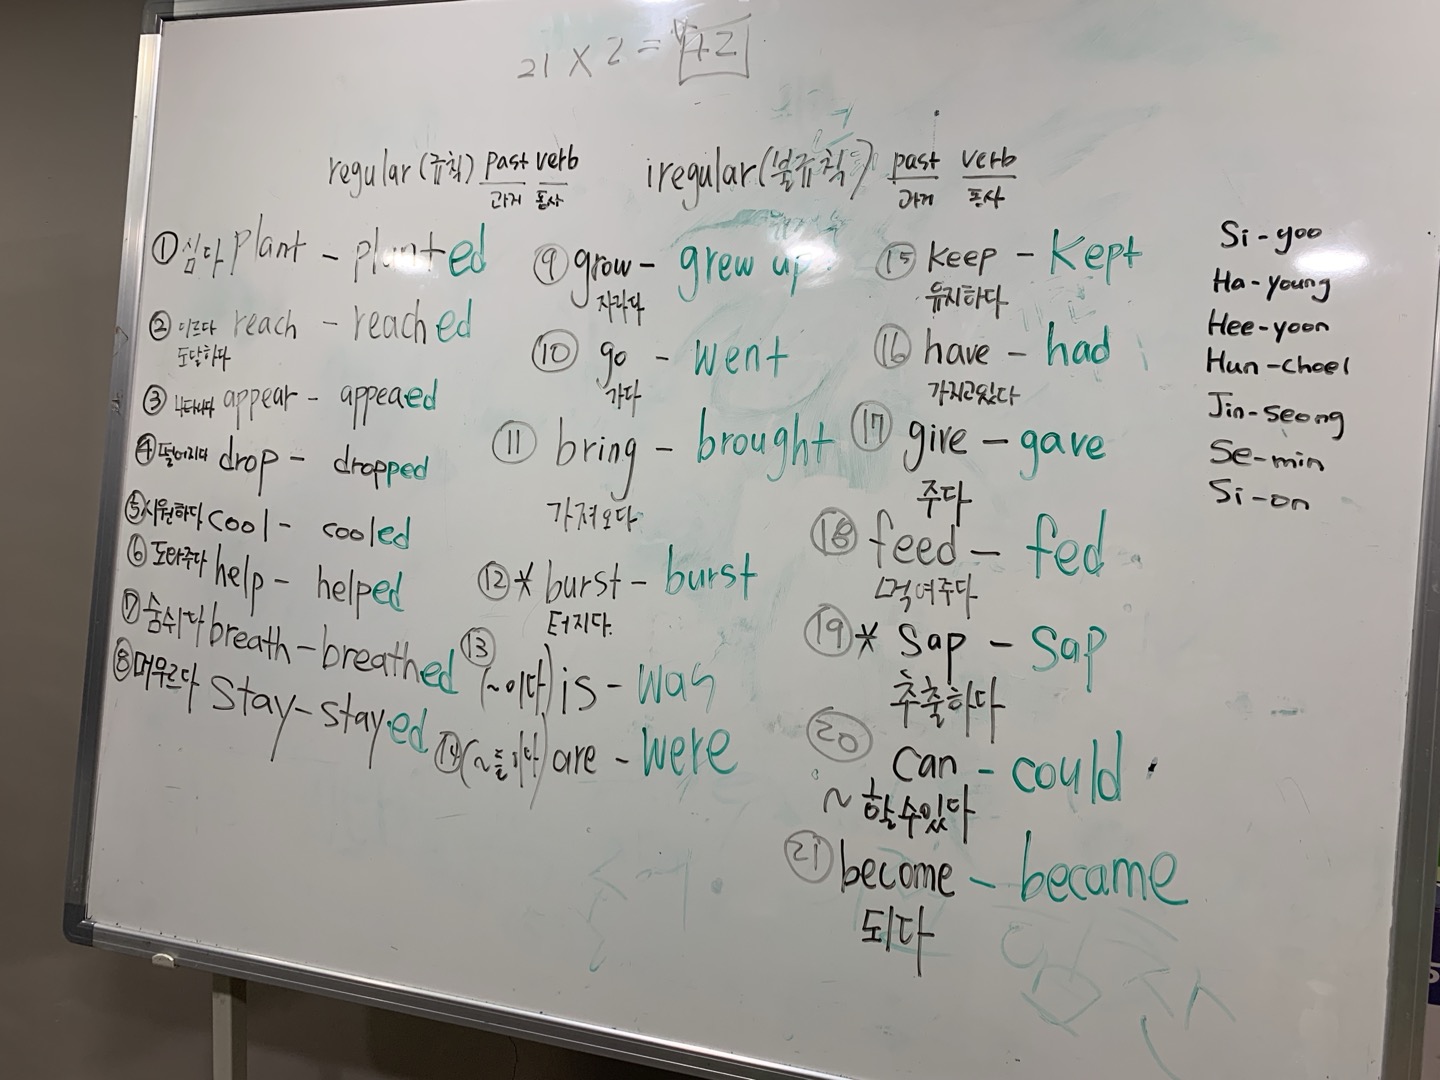 21 X 2 = 42
regular (규칙) past verb
과거 동사
iregular (불규칙) past verb
과거 동사
① 심다 plant - planted
② 이르다 reach - reached
도달하다
③ 나타나다 appear - appeaed
④ 떨어지다 drop - dropped
⑤ 시원하다 cool - cooled
⑥ 도와주다 help - helped
⑦ 숨쉬다 breath - breathed
⑧ 머무르다 stay - stayed
⑨ grow - grew up
자라다
⑩ go - went
가다
⑪ bring - brought
가져오다
⑫ * burst - burst
터지다.
⑬ (~이다) is - was
⑭ (~들이다) are - were
⑮ keep - kept
유지하다
⑯ have - had
가지고있다
⑰ give - gave
주다
⑱ feed - fed
먹여주다
⑲ * sap - sap
추출하다
⑳ can - could
~할수있다
㉑ become - became
되다
Si-yoo
Ha-young
Hee-yoon
Hun-cheel
Jin-seong
Se-min
Si-on